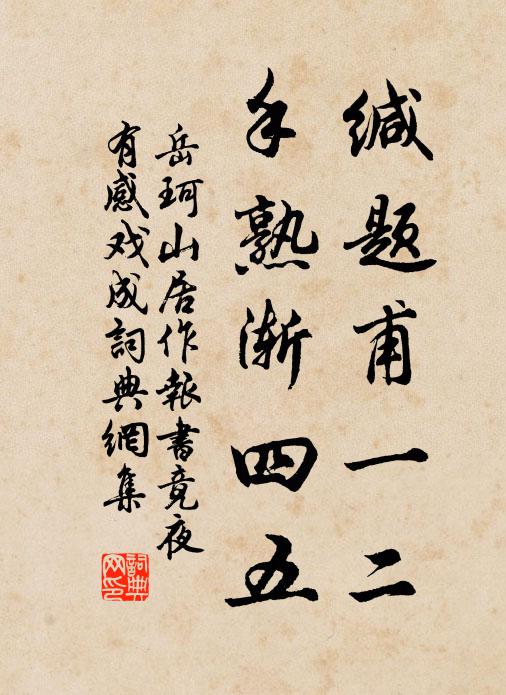 缄题甫一二
手熟渐四五
岳珂山居作報書竟夜
有感戏成詞典網集
詞典
网印